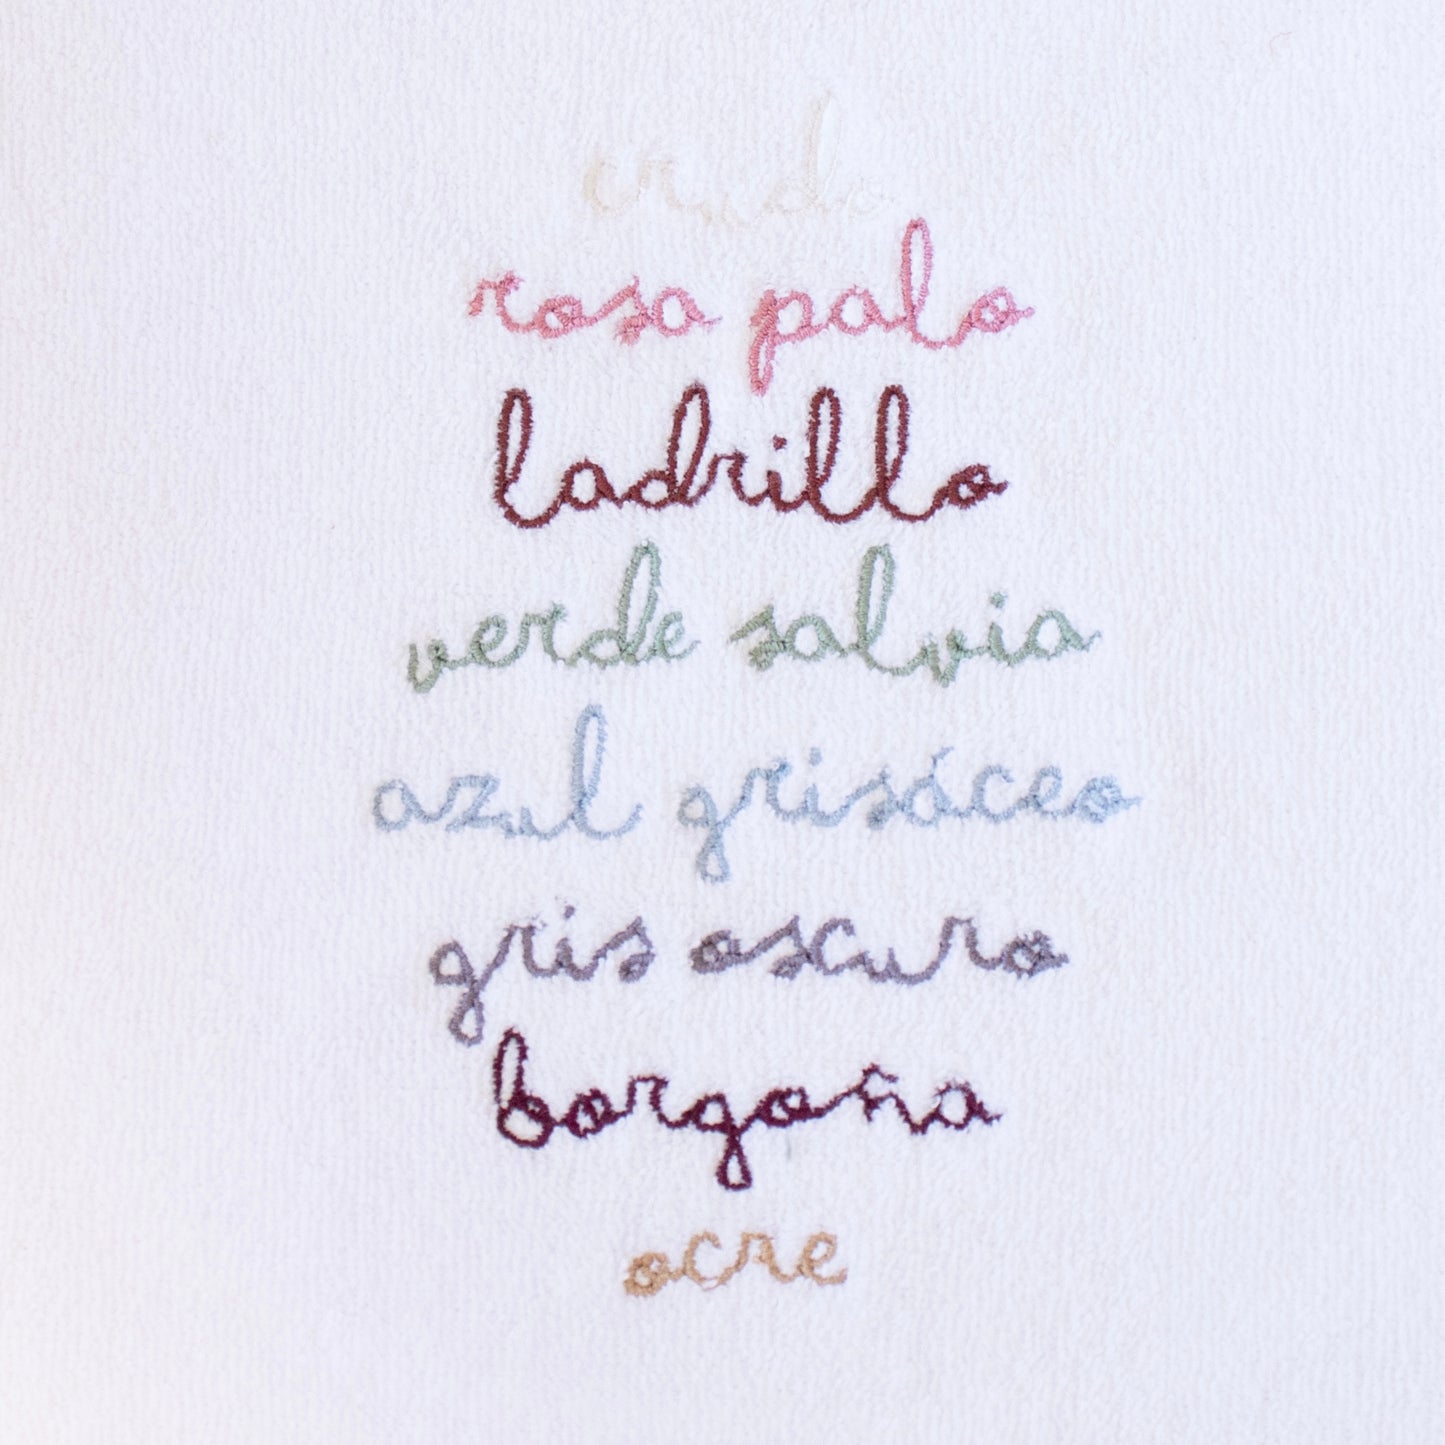 crudo
rosa palo
ladrillo
verde salvia
azul grisáceo
gris oscuro
borgoña
ocre